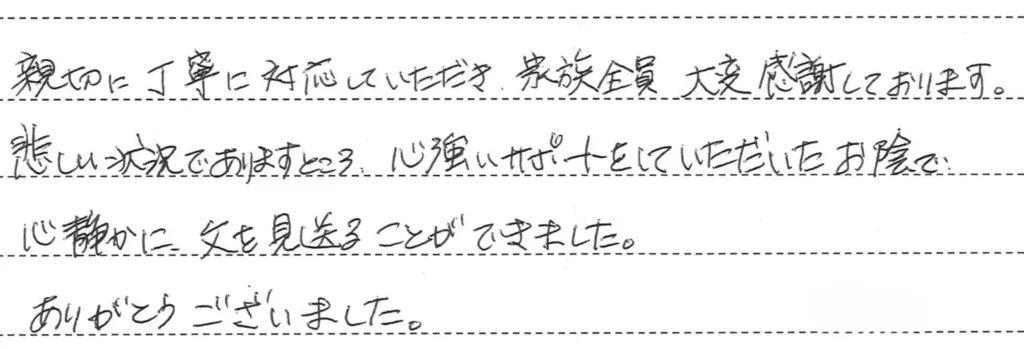 親切に丁寧に対応していただき、家族全員 大変感謝しております。
悲しい状況でありますところ、心強いサポートをしていただいたお陰で、
心静かに、父を見送ることができました。
ありがとうございました。